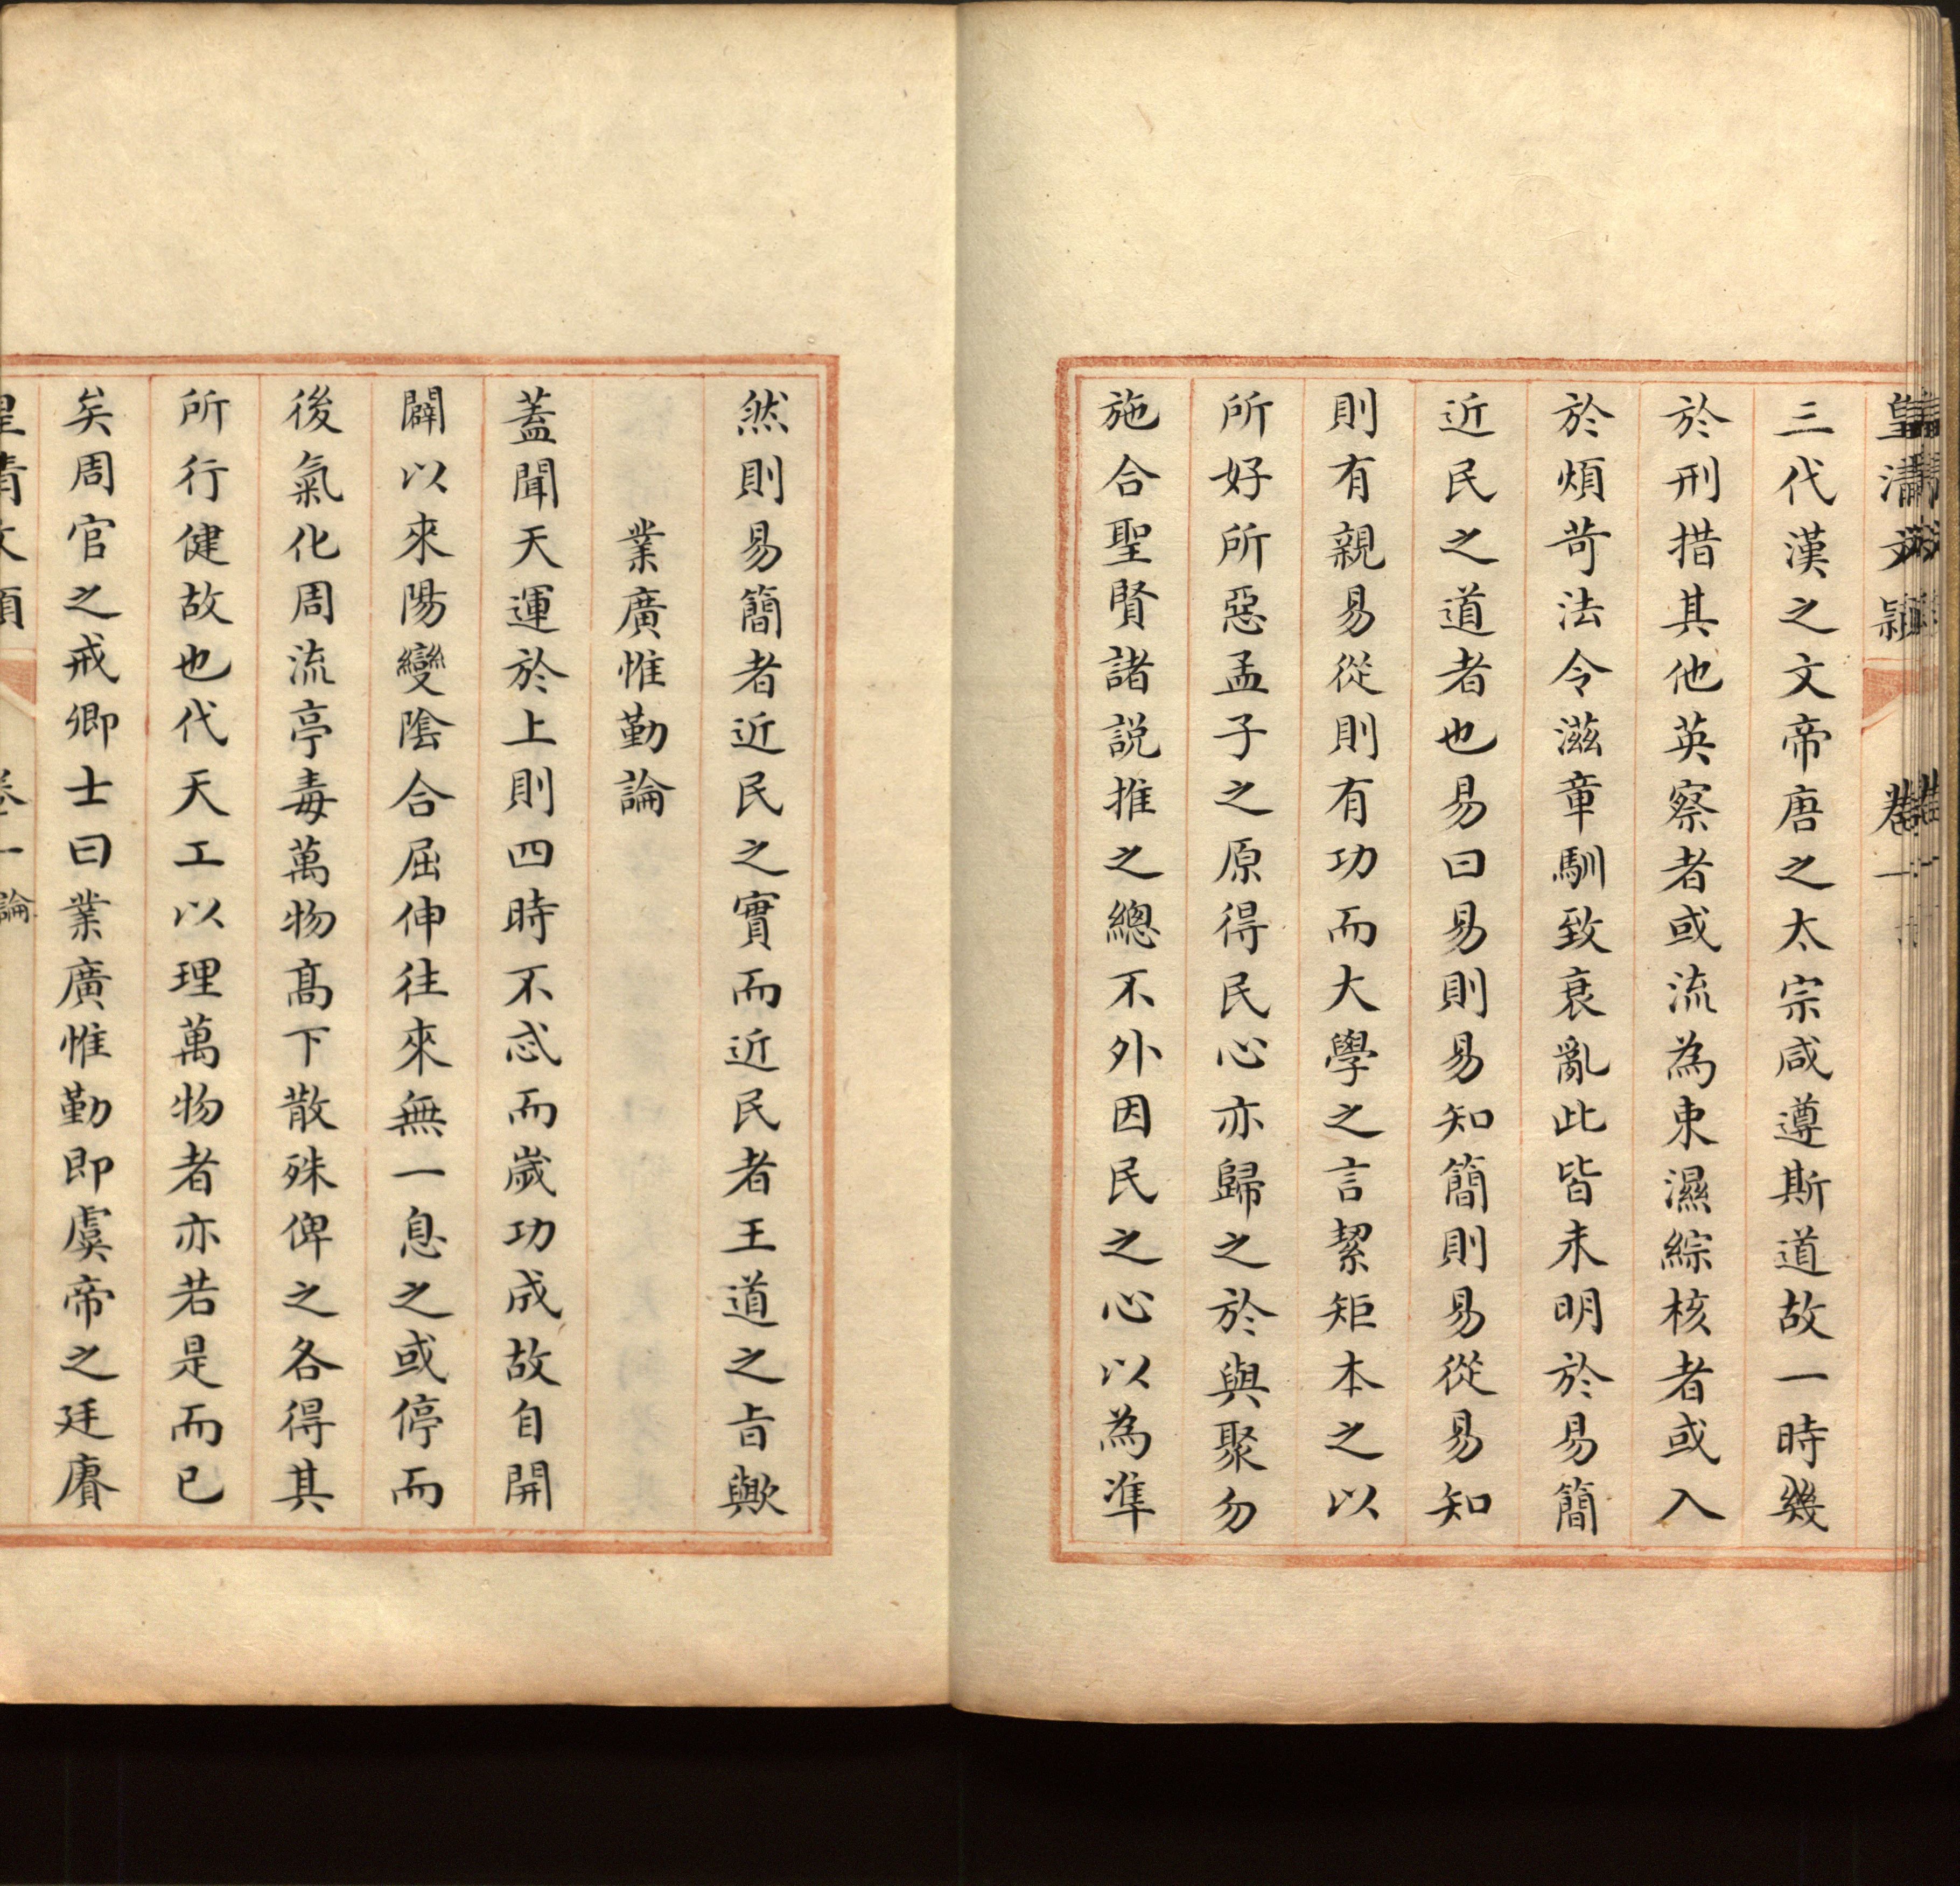 皇清文穎 卷一
三代漢之文帝唐之太宗咸遵斯道故一時幾
於刑措其他英察者或流為束濕綜核者或入
於煩苛法令滋章馴致衰亂此皆未明於易簡
近民之道者也易曰易則易知簡則易從易知
則有親易從則有功而大學之言絜矩本之以
所好所惡孟子之原得民心亦歸之於與聚勿
施合聖賢諸説推之總不外因民之心以為準
然則易簡者近民之實而近民者王道之㫖歟
業廣惟勤論
蓋聞天運於上則四時不忒而歲功成故自開
闢以來陽變陰合屈伸往來無一息之或停而
後氣化周流亭毒萬物髙下散殊俾之各得其
所行健故也代天工以理萬物者亦若是而已
矣周官之戒卿士曰業廣惟勤即虞帝之廷賡
皇清文穎 卷一 論